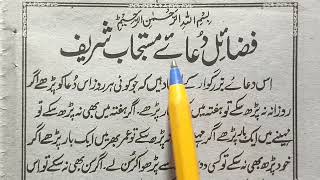 بِسْمِ اللهِ الرَّحْمٰنِ الرَّحِيْمِ
فضائل دُعائے مستجاب شریف
اس دُعائے بزرگوار کے میں کہ جو کوئی ہر روز اس دُعا کو پڑھے اگر
روزانہ نہ پڑھ سکے تو ہفتہ میں پڑھے اگر ہفتہ میں بھی نہ پڑھ سکے تو
مہینے میں ایک بار پڑھے اگر بھی نہ پڑھ سکے تو عمر بھر میں ایک بار پڑھے اگر
خود پڑھ بھی نہ سکے تو کسی سے پڑھوا کر سُن لے، اگر سُن بھی نہ سکے تو اس